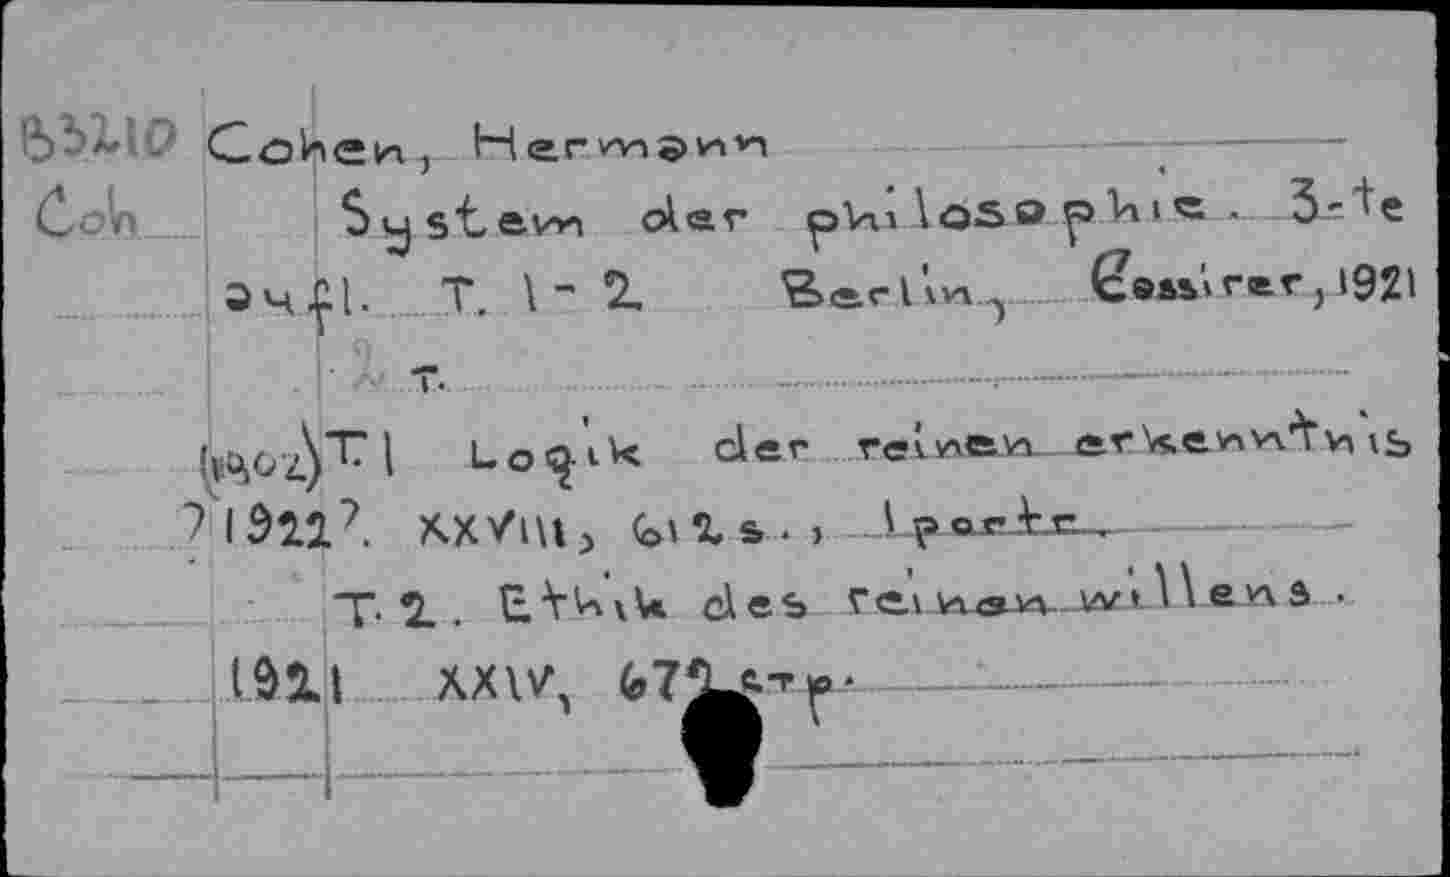 B3210 Cohen, Hermann
Coh System der philosophie. 3-te
aufl. T. 1-2. Berlin, Cassirer, 1921
2 T.
(1902) T.1 Logik der reinen erkenntnis
? 1922?. XXVIII, 612 s., 1 portr.
T. 2. Ethik des reinen willens.
1921 XXIV, 679 стр.